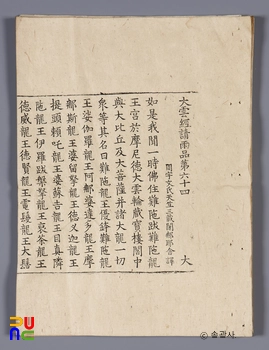 大雲經請雨品第六十四 大
周宇文氏天竺三藏闍那耶舍譯
如是我聞一時佛住難陁跋難陁龍
王宮於摩尼德大雲輪藏寶樓閣中
與大比丘及大菩薩并諸大龍一切
衆等其名曰難陁龍王優鉢難陁龍
王娑伽羅龍王阿那婆達多龍王摩
那斯龍王婆留拏龍王德叉迦龍王
提頭賴吒龍王婆蘇吉龍王目眞隣
陁龍王伊羅跋拏龍王荼龍王
德威龍王德賢龍王電龍王大
© 송광사